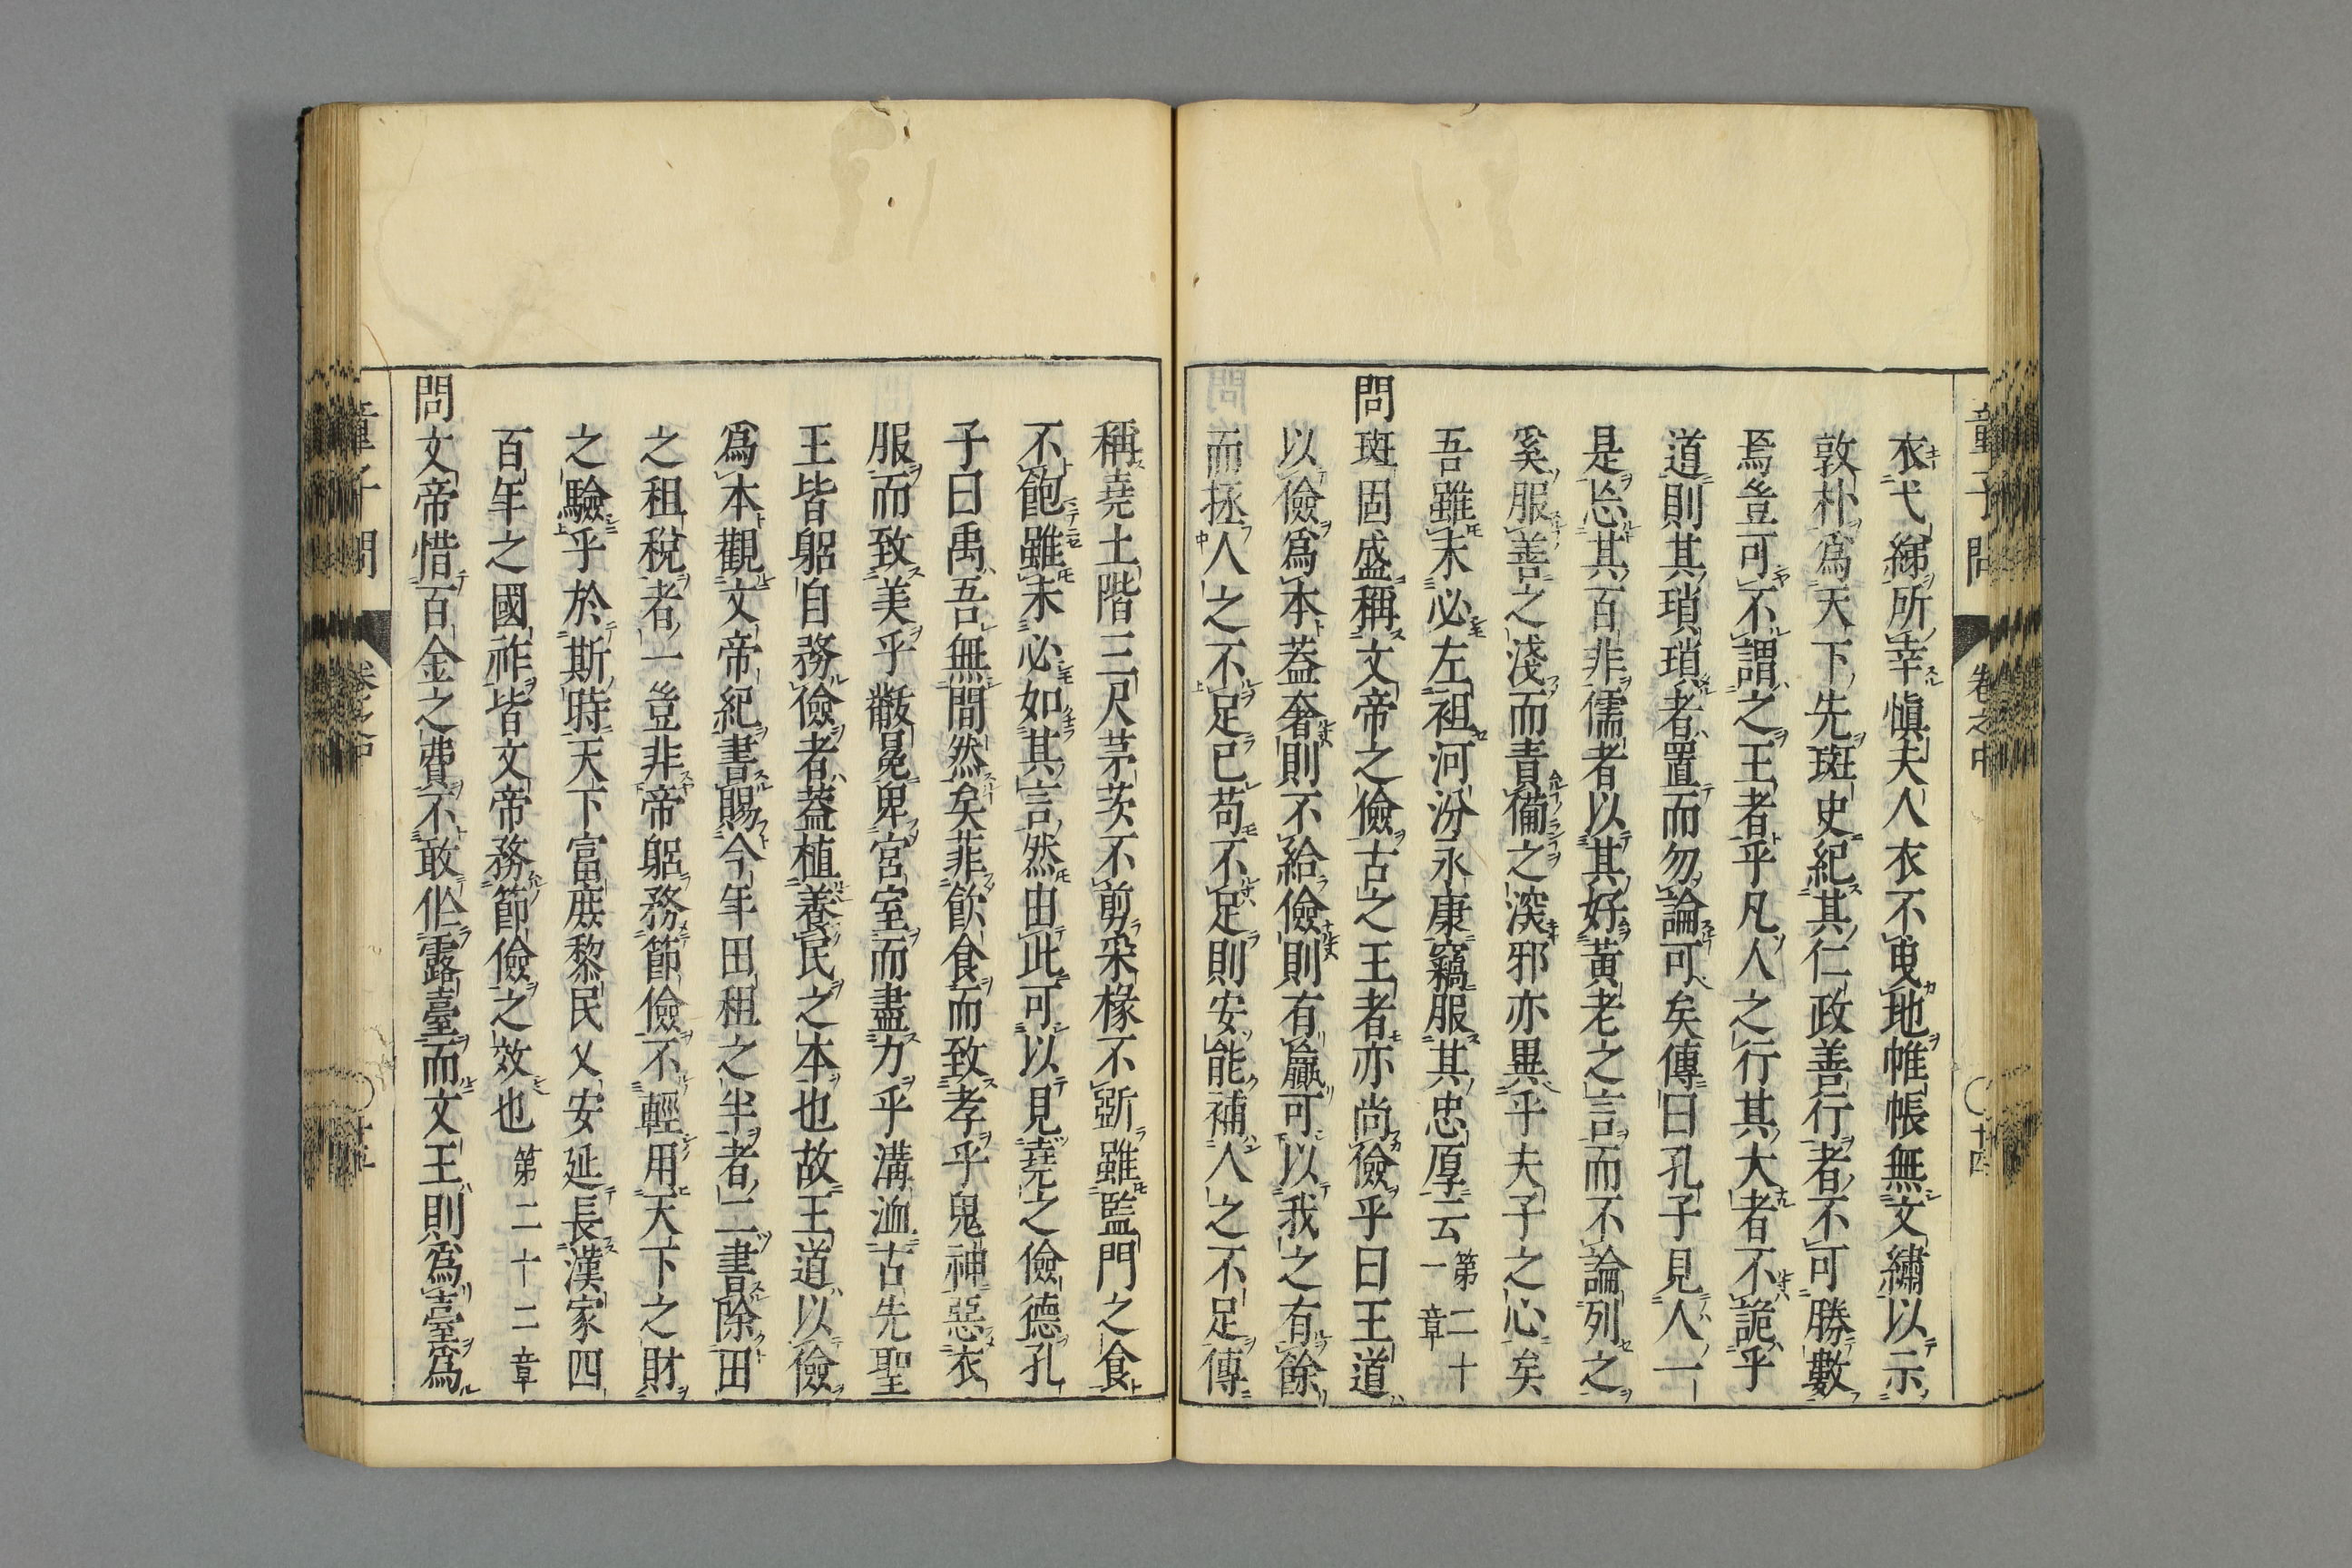 童子問　卷之中　〇十四
衣弋綈所幸愼夫人衣不曳地帷帳無文繡以示
敦朴爲天下先班史紀其仁政善行者不可勝數
焉豈可不謂之王者乎凡人之行其大者不詭乎
道則其瑣瑣者置而勿論可矣傳曰孔子見人一
是忘其百非儒者以其好黃老之言而不論列之
奚服善之淺而責備之深邪亦異乎夫子之心矣
吾雖未必左袒河汾永康竊服其忠厚云第二十一章
問班固盛稱文帝之儉古之王者亦尚儉乎曰王道
以儉爲本蓋奢則不給儉則有贏可以我之有餘
而拯人之不足已苟不足則安能補人之不足傳
稱堯土階三尺茅茨不剪采椽不斲雖監門之食
不飽雖未必如其言然由此可以見堯之儉德孔
子曰禹吾無間然矣菲飮食而致孝乎鬼神惡衣
服而致美乎黻冕卑宮室而盡力乎溝洫古先聖
王皆躬自務儉者蓋植養民之本也故王道以儉
爲本觀文帝紀書賜今年田租之半者二書除田
之租稅者一豈非帝躬務節儉不輕用天下之財
之驗乎於斯時天下富庶黎民乂安延長漢家四
百年之國祚皆文帝務節儉之效也第二十二章
問文帝惜百金之費不敢作露臺而文王則爲臺爲
童子問　卷之中